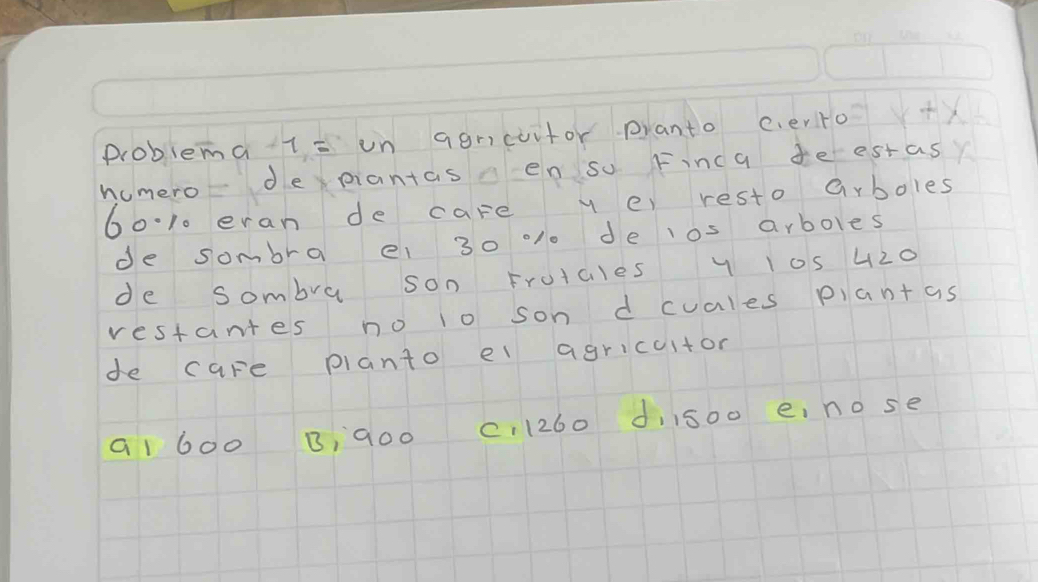 Problema 1 = un agricultor planto cierto
numero de plantas en su Finca de estas
60% eran de cafe y el resto arboles
de sombra el 30 % de los arboles
de sombra son Frutales y los 420
restantes no lo son d cuales plantas
de cafe planto el agricultor
a) 600 B, 900 c, 1260 d, 1500 e, no se